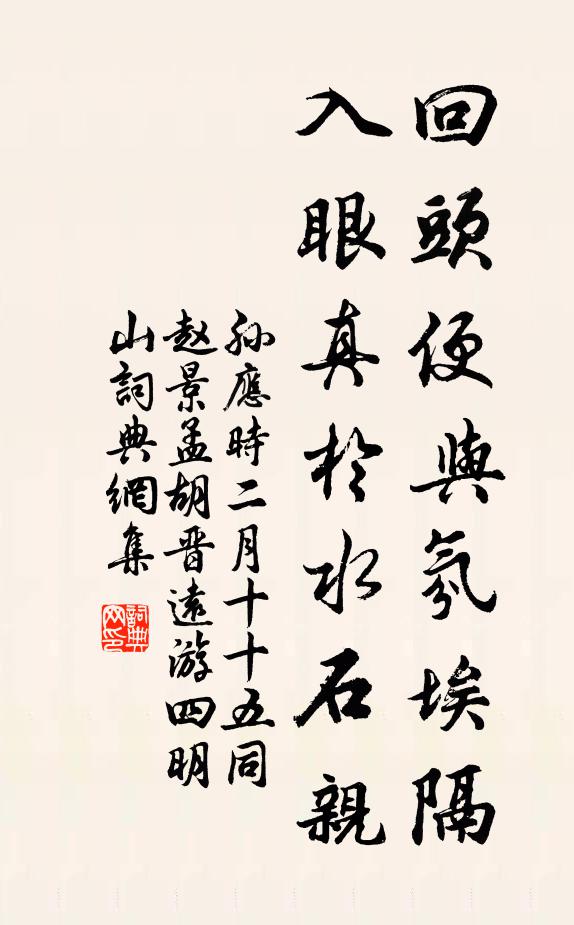 回頭便與氛埃隔
入眼真於水石親
孙應時二月十十五同
赵景孟胡晋遠游四明
山詞典網集
詞典网印